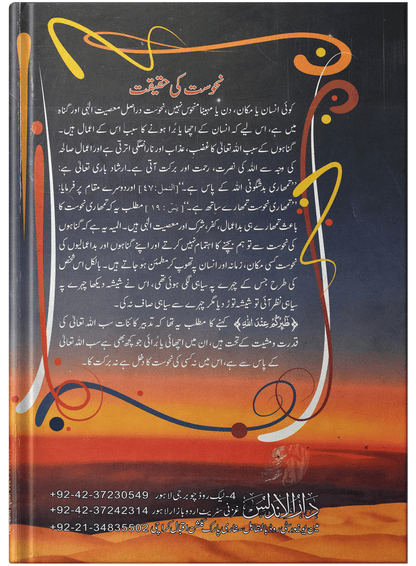 نحوست کی حقیقت
کوئی انسان یا مکان، دن یا مہینا منحوس نہیں، نحوست دراصل معصیت الٰہی اور گناہ
میں ہے، اس لیے کہ انسان کے اچھا یا بُرا ہونے کا سبب اس کے اعمال ہیں۔
گناہوں کے سبب اللہ کا غضب، عذاب اور ناراضگی اترتی ہے اور اعمال صالحہ
کی وجہ سے اللہ کی نصرت، رحمت اور برکت آتی ہے۔ ارشاد باری تعالیٰ ہے:
”تمھاری بدشگونی اللہ کے پاس ہے۔“ [النمل: ٤٧] اور دوسرے مقام پر فرمایا:
”تمھاری نحوست تمھارے ساتھ ہے۔“ [یٰس: ١٩] مطلب یہ کہ تمھاری نحوست کا
باعث تمھارے ہی بداعمال، کفر، شرک اور معصیت الٰہی ہیں۔ المیہ یہ ہے کہ گناہوں
کی نحوست سے تو ہم بچنے کا اہتمام نہیں کرتے اور اپنے گناہوں اور بداعمالیوں کی
نحوست کسی مکان، زمانہ اور انسان پر تھوپ کر مطمئن ہو جاتے ہیں۔ بالکل اس شخص
کی طرح جس کے چہرے پر سیاہی لگی ہوئی تھی، اس نے شیشہ دیکھا چہرے پر
سیاہی نظر آئی تو شیشہ توڑ دیا مگر چہرے سے سیاہی صاف نہ کی۔
﴿طٰٓئِرُكُمْ عِنْدَ اللّٰهِ﴾ کہنے کا مطلب یہ تھا کہ تدبیر کائنات سب اللہ تعالیٰ کی
قدرت و مشیت کے تحت ہیں، ان میں اچھائی یا برائی جو کچھ بھی ہے سب اللہ تعالیٰ
کے پاس سے ہے، اس میں نہ کسی کی نحوست کا دخل ہے نہ برکت کا۔
دارالاندلس
4- لیک روڈ چوبرجی لاہور +92-42-37230549
غزنی سٹریٹ اردو بازار لاہور +92-42-37242314
گلشن اقبال کراچی +92-21-34835502